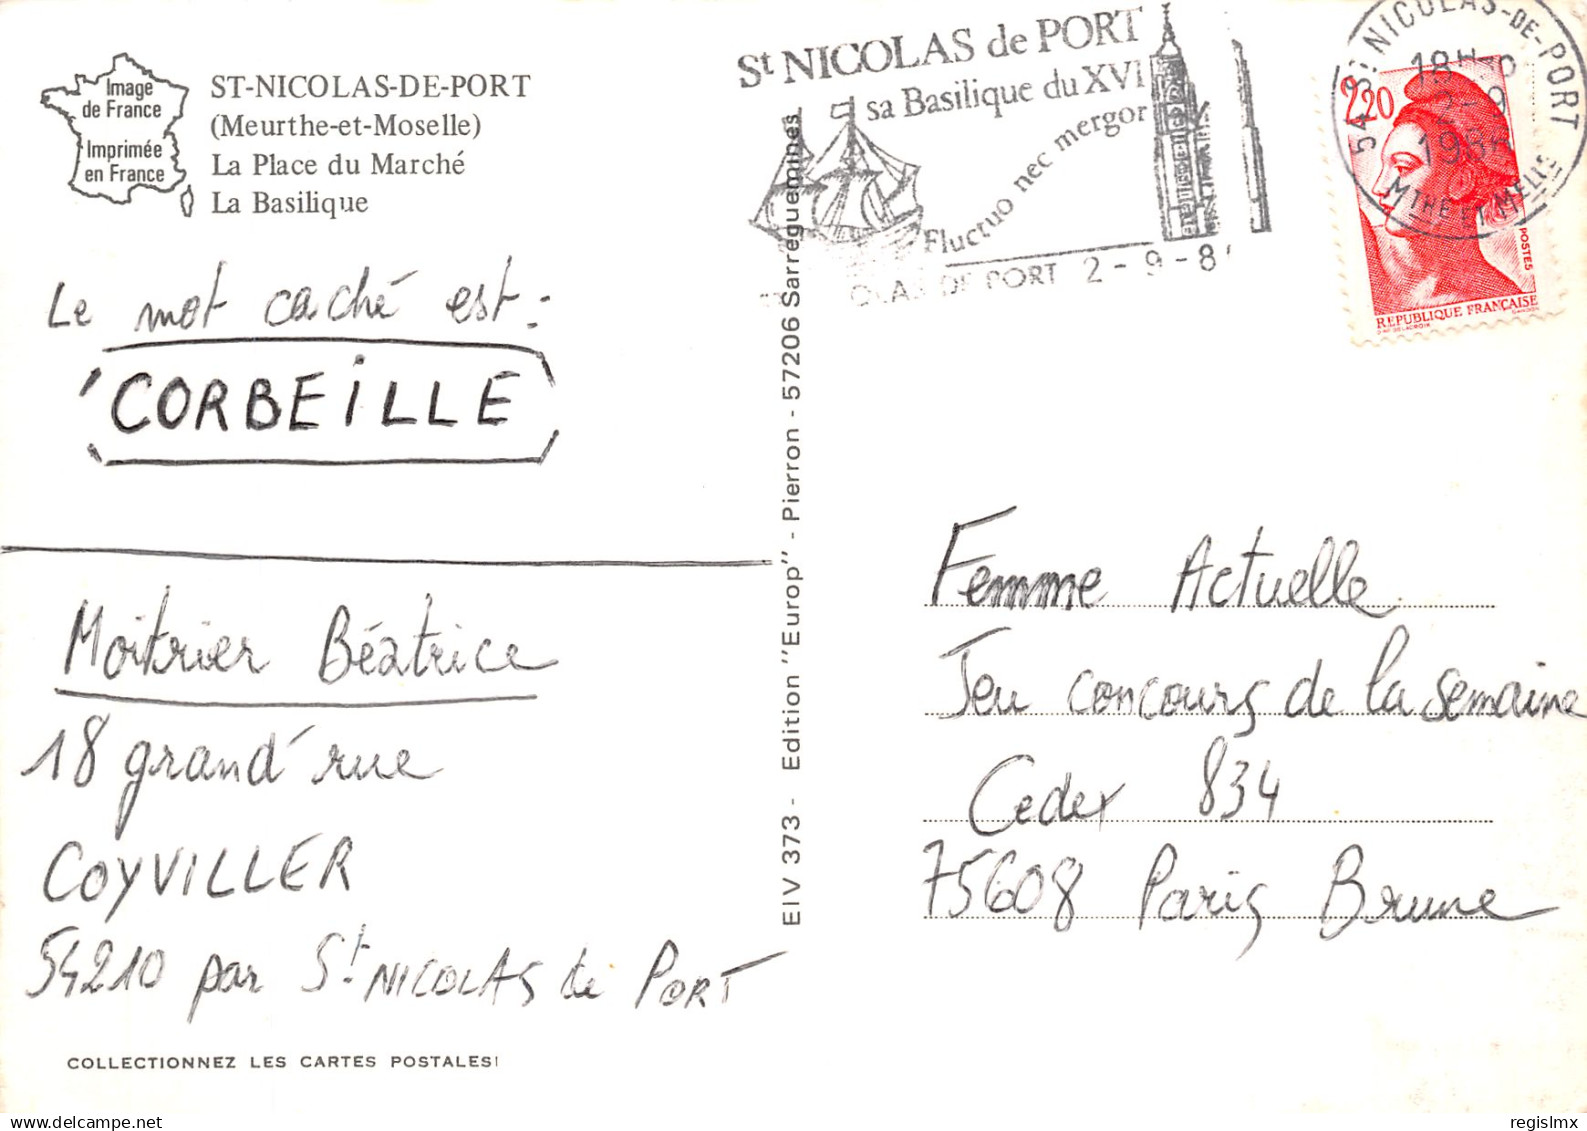 Image
de France
Imprimée
en France
ST-NICOLAS-DE-PORT
(Meurthe-et-Moselle)
La Place du Marché
La Basilique
Le mot caché est :
CORBEILLE
Moitrier Béatrice
18 grand' rue
COYVILLER
54210 par St NICOLAS de PORT
COLLECTIONNEZ LES CARTES POSTALES!
EIV 373 - Edition "Europ" - Pierron - 57206 Sarreguemines
St NICOLAS de PORT
sa Basilique du XVI
Fluctuo nec mergor
OLAS DE PORT 2-9-8
54 ST NICOLAS-DE-PORT
18H
2-9
198
MTHE ET MELLE
2,20
POSTES
REPUBLIQUE FRANÇAISE
Femme Actuelle
Jeu concours de la semaine
Cedex 834
75608 Paris Brune
regislmx